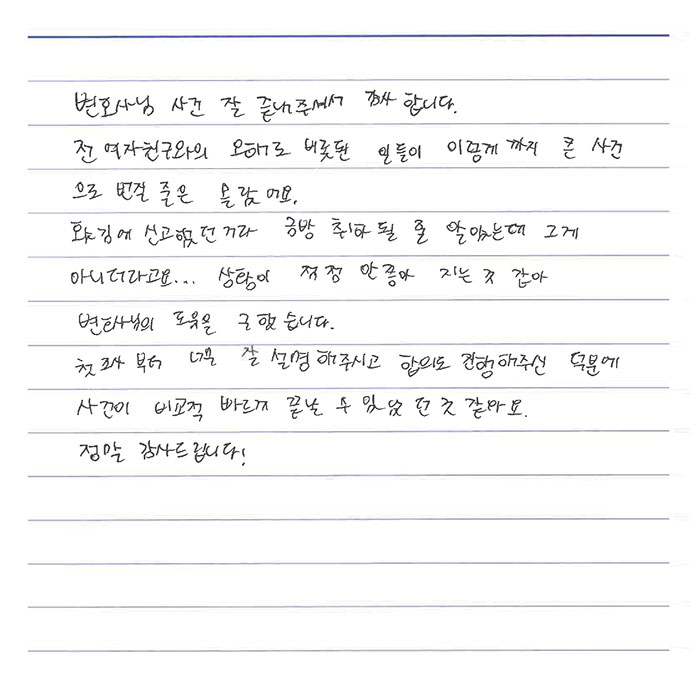 변호사님 사건 잘 끝내주셔서 감사 합니다.
전 여자친구와의 오해로 비롯된 일들이 이렇게 까지 큰 사건
으로 번질 줄은 몰랐어요.
홧김에 신고했던거라 금방 취하 될 줄 알았는데 그게
아니더라고요... 상황이 점점 안좋아 지는 것 같아
변호사님의 도움을 구했습니다.
첫 조사 부터 너무 잘 설명해주시고 합의도 진행해주신 덕분에
사건이 비교적 빠르게 끝날 수 있었 던 것 같아요.
정말 감사드립니다!